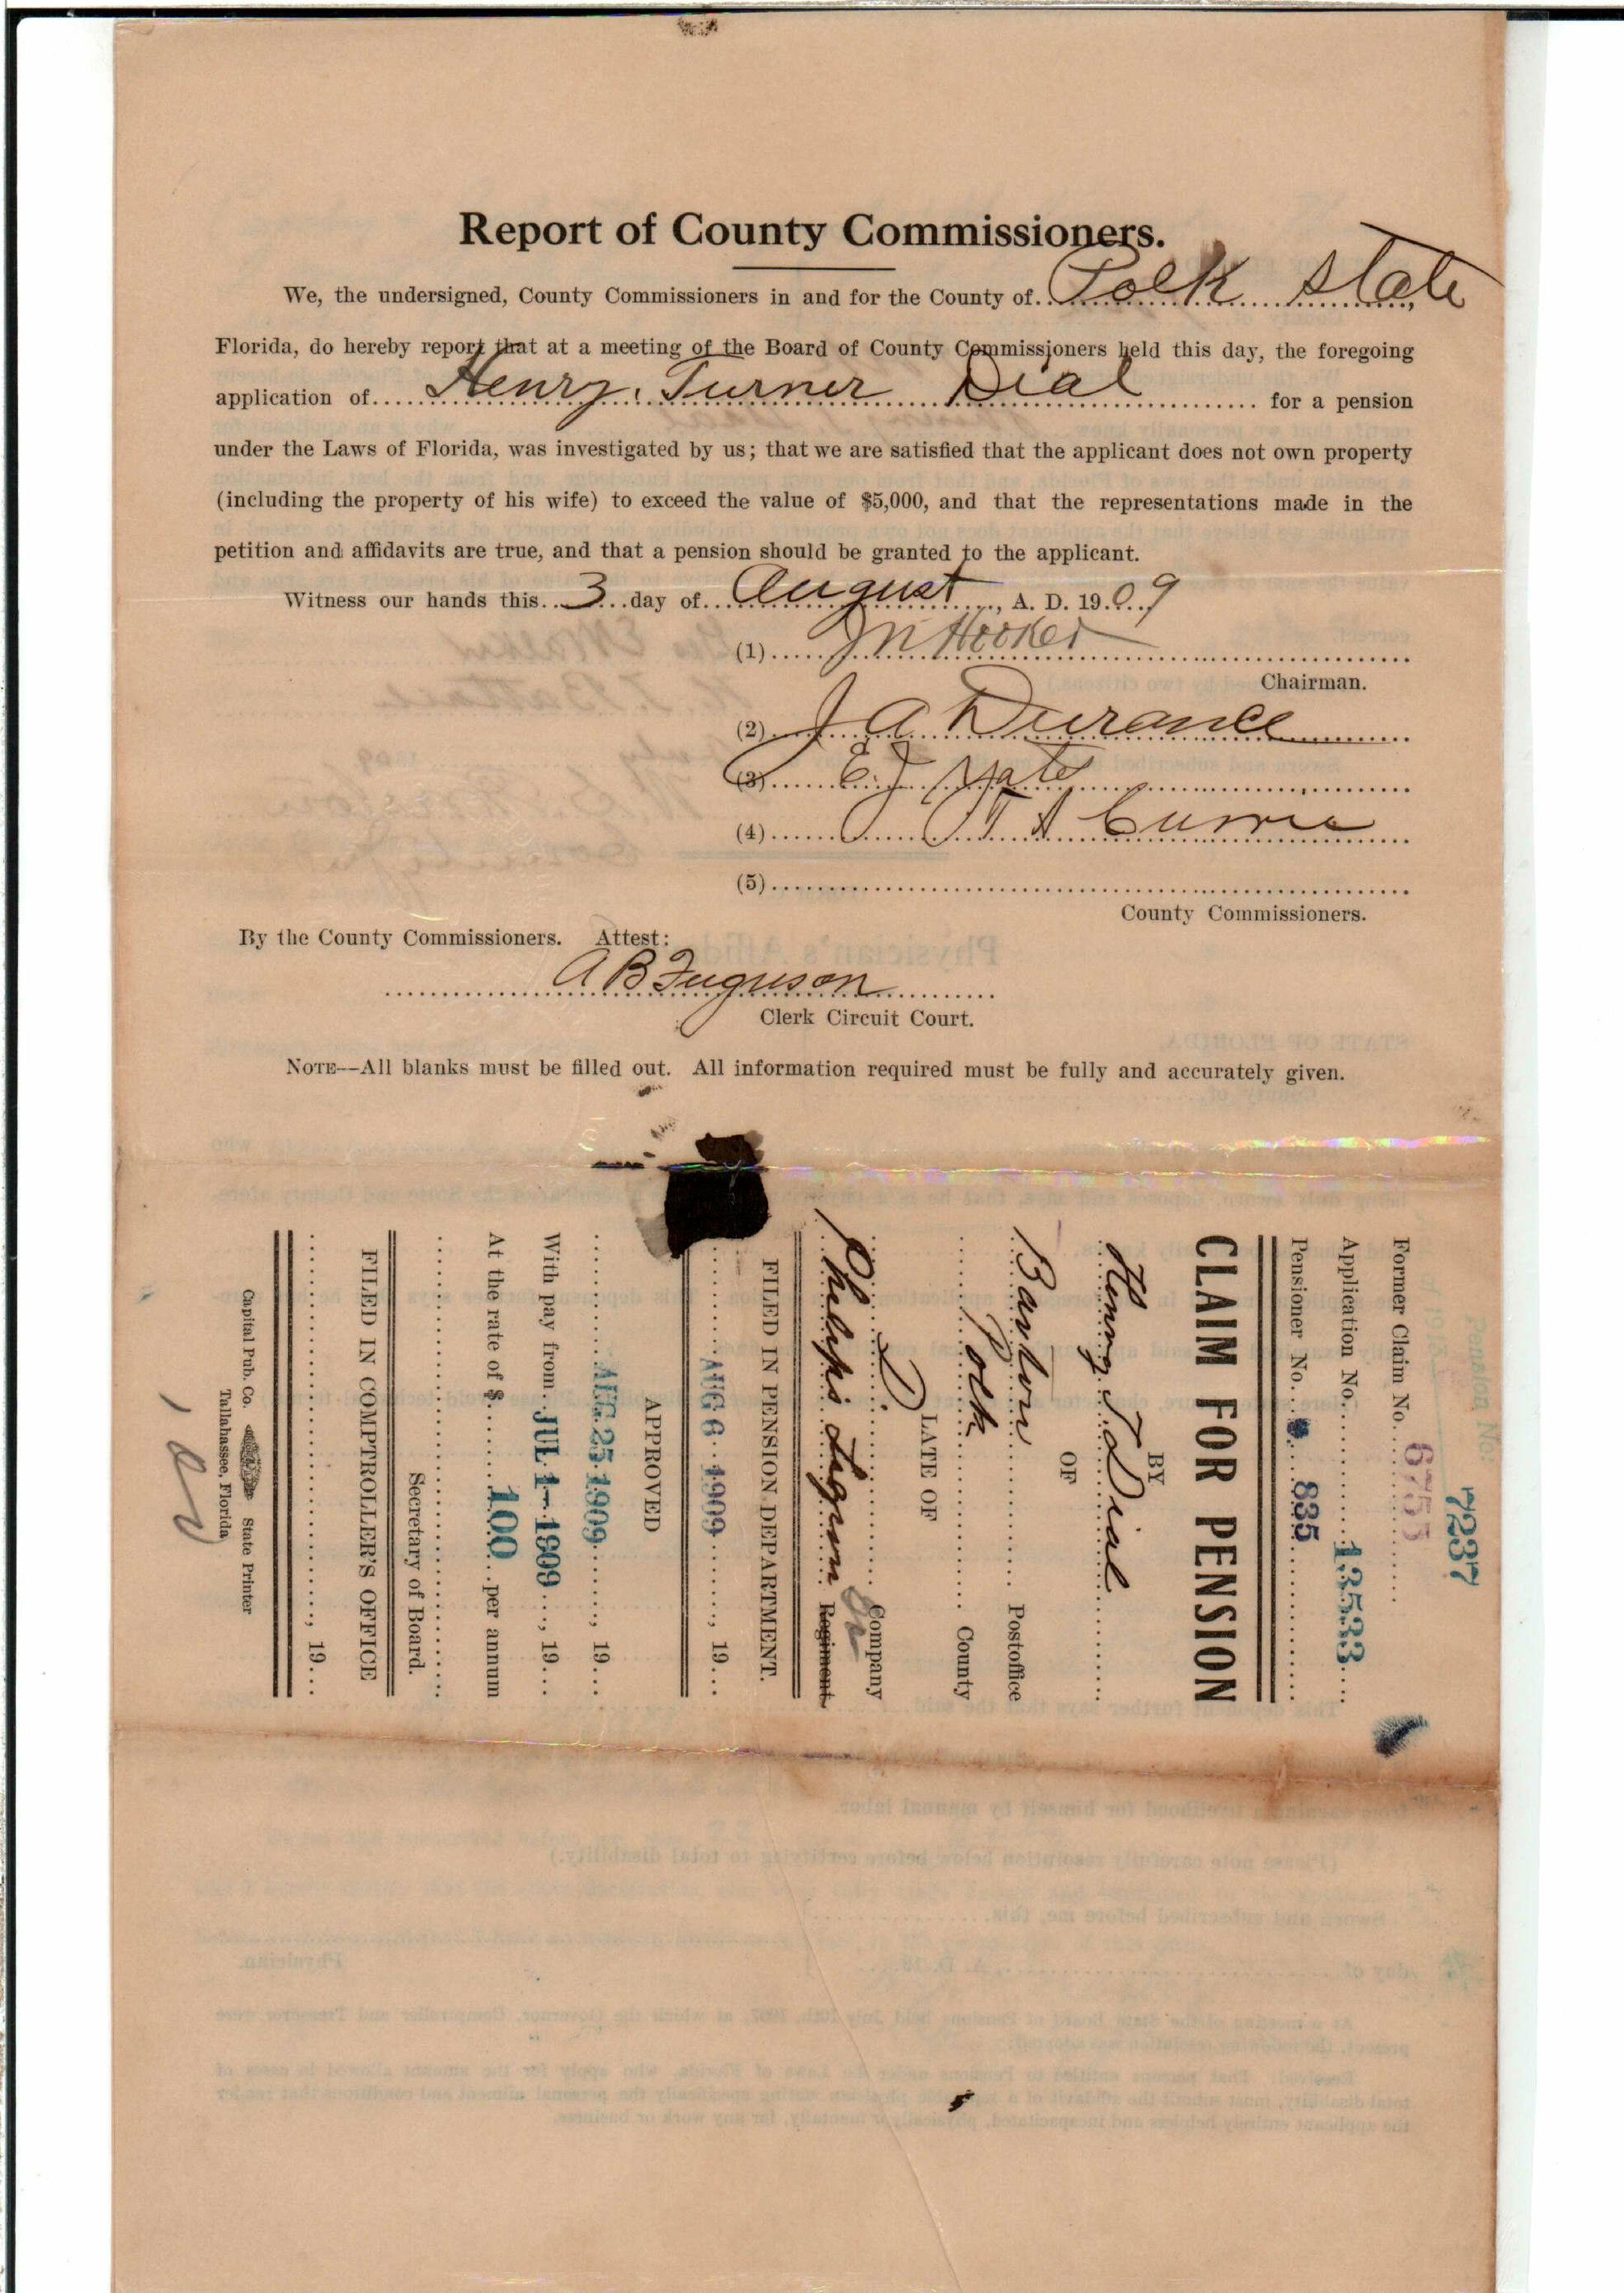 Report of County Commissioners.
We, the undersigned, County Commissioners in and for the County of Polk State,
Florida, do hereby report that at a meeting of the Board of County Commissioners held this day, the foregoing
application of Henry Turner Dial for a pension
under the Laws of Florida, was investigated by us; that we are satisfied that the applicant does not own property
(including the property of his wife) to exceed the value of $5,000, and that the representations made in the
petition and affidavits are true, and that a pension should be granted to the applicant.
Witness our hands this 3 day of August, A. D. 1909
(1) J N Hooker
Chairman.
(2) J A Durance
(3) E J Yate
(4) T A Currie
(5)
County Commissioners.
By the County Commissioners. Attest:
A B Fuguson
Clerk Circuit Court.
NOTE—All blanks must be filled out. All information required must be fully and accurately given.
7237
Former Claim No. 6753
Application No. 13533
Pensioner No. 835
CLAIM FOR PENSION
BY
Henry T Dial
OF
Bartow Postoffice
Polk County
LATE OF
D Company
Philips Legion Regiment
Ga
FILED IN PENSION DEPARTMENT.
AUG 6 1909, 19
APPROVED
AUG 25 1909, 19
With pay from JUL 1-1909, 19
At the rate of $ 100 per annum
Secretary of Board.
FILED IN COMPTROLLER'S OFFICE
, 19
Capital Pub. Co. State Printer
Tallahassee, Florida